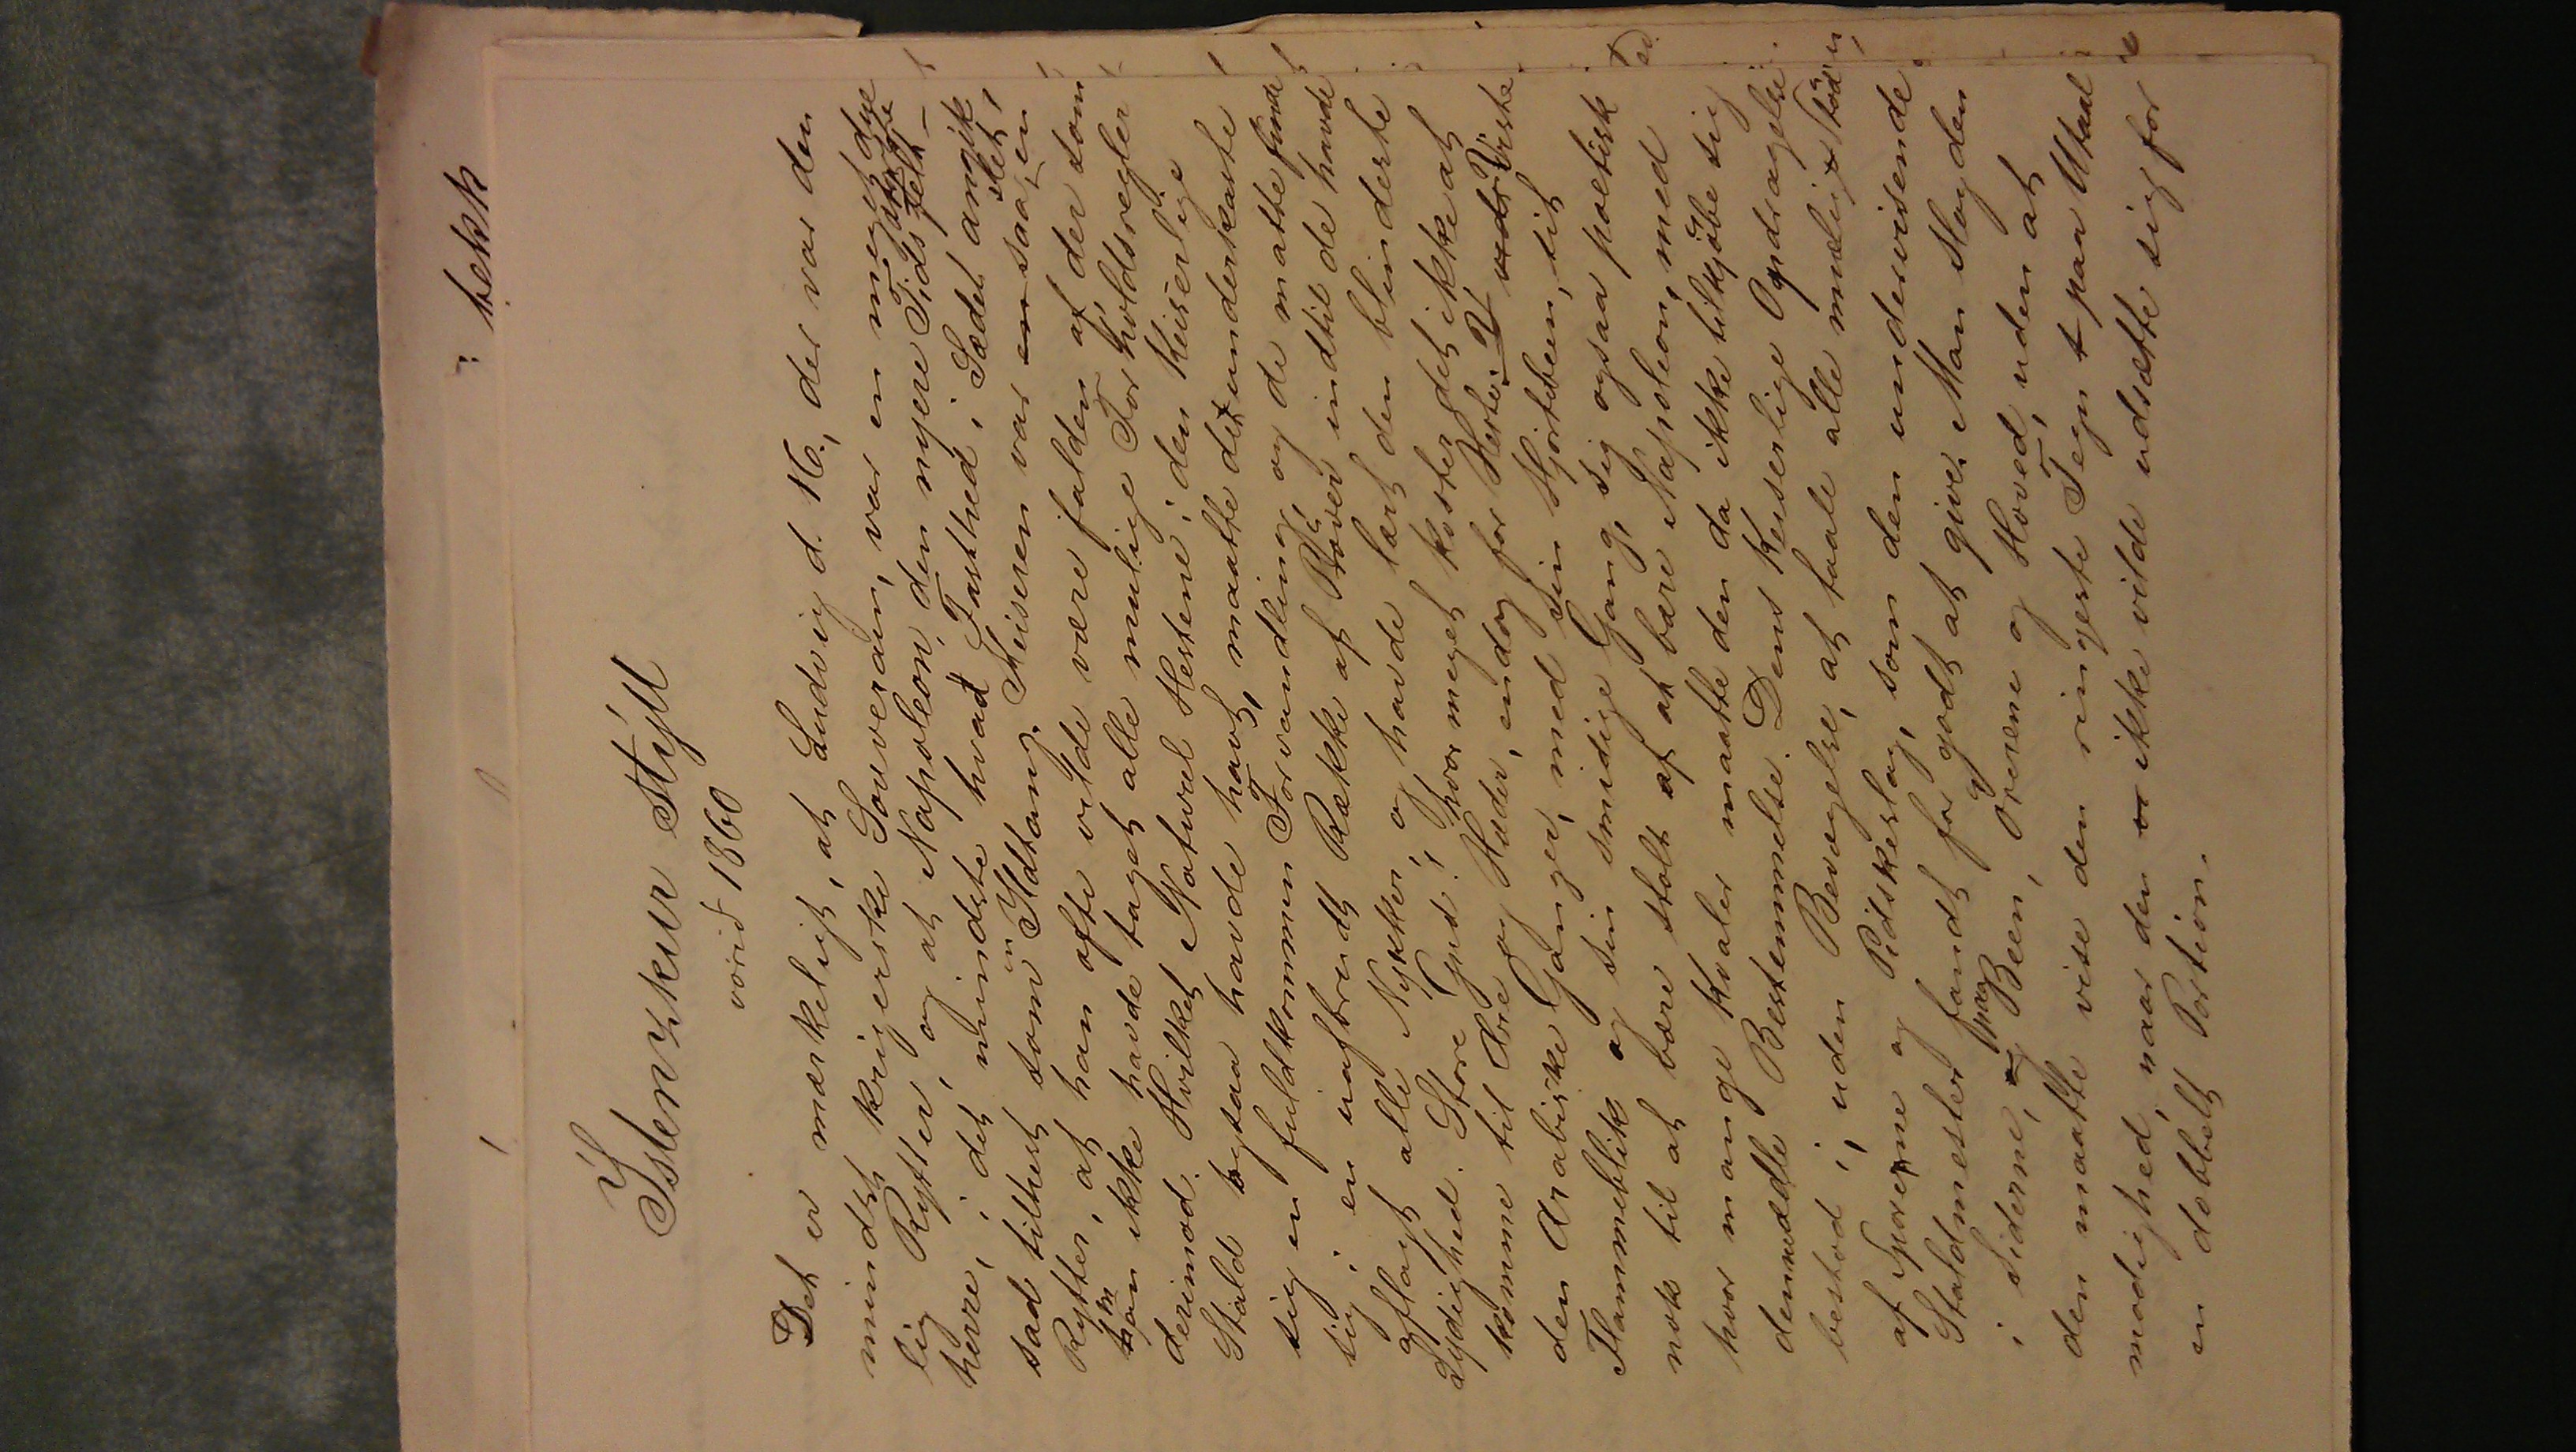 bekk
Íslenzkur Stýll
vorið 1860
Det er mærkeligt, at Ludvig d. 16., der var den
mindst krigerske Souverain, var en meget due
lig Rytter, og at Napoleon, den nyere Tids største Felt-
herre, i det mindste hvad Fasthed i Sædet angik,
sad tilhest som en Ildtang. Keiseren var en saa slet
Rytter, at han ofte vilde være falden af, dersom
man ikke havde taget alle mulige Forholdsregler
derimod. Hvilket Naturel Hestene i den Keiserlige
Stald ogsaa havde havt, maatte de underkaste
sig en fuldkommen Forvandling, og de maatte finde
sig i en uafbrudt Række af Prøver indtil de havde
aflagt alle Nykker, og havde lært den blindeste
Lydighed. Store Gud! hvor meget koster det ikke at
komme til Ære og Hæder, endog for Heste! Visste
den Arabiske Ganger, med sin Hjorteben, sit
Flammeblik og sin smidige Gang, sig ogsaa poetisk
nok til at være stolt af at bære Napoleon, med
hvor mange Kvaler maatte den da ikke tilkjøbe sig
denne ædle Bestemmelse. Dens Keiserlige Opdragelse
bestod i, uden Bevægelse, at taale alle mulige Stød
af Sporerne og Pidskeslag, som den undervisende
Staldmester fandt for godt at give. Man slog den
i Siderne, paa Been, Ørerne og Hoved, uden at
den maatte vise den ringeste Tegn paa Utaal
modighed, naar den ikke vilde udsætte sig for
en dobbelt Portion.